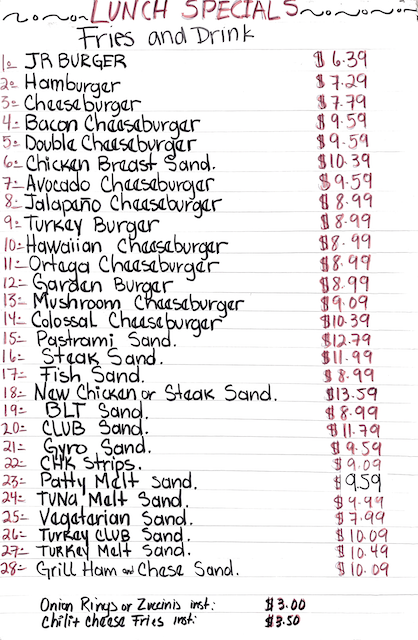 LUNCH SPECIALS
Fries and Drink
1.- JR BURGER $6.39
2.- Hamburger $7.29
3.- Cheeseburger $7.79
4.- Bacon Cheeseburger $9.59
5.- Double Cheeseburger $9.59
6.- Chicken Breast Sand. $10.39
7.- Avocado Cheeseburger $9.59
8.- Jalapaño Cheeseburger $8.99
9.- Turkey Burger $8.99
10.- Hawaiian Cheeseburger $8.99
11.- Ortega Cheeseburger $8.99
12.- Garden Burger $8.99
13.- Mushroom Cheeseburger $9.09
14.- Colossal Cheeseburger $10.39
15.- Pastrami Sand. $12.79
16.- Steak Sand. $11.99
17.- Fish Sand. $8.99
18.- New Chicken or Steak Sand. $13.59
19.- BLT Sand. $8.99
20.- CLUB Sand. $11.79
21.- Gyro Sand. $9.59
22.- CHK Strips. $9.09
23.- Patty Melt Sand. $9.59
24.- TUNA Malt Sand. $9.99
25.- Vagatarian Sand. $7.99
26.- TURKEY CLUB Sand. $10.09
27.- TURKEY Malt Sand. $10.49
28.- Grill Ham and Chase Sand. $10.09
Onion Rings or Zuccinis inst: $3.00
Chili + cheese Fries inst: $3.50